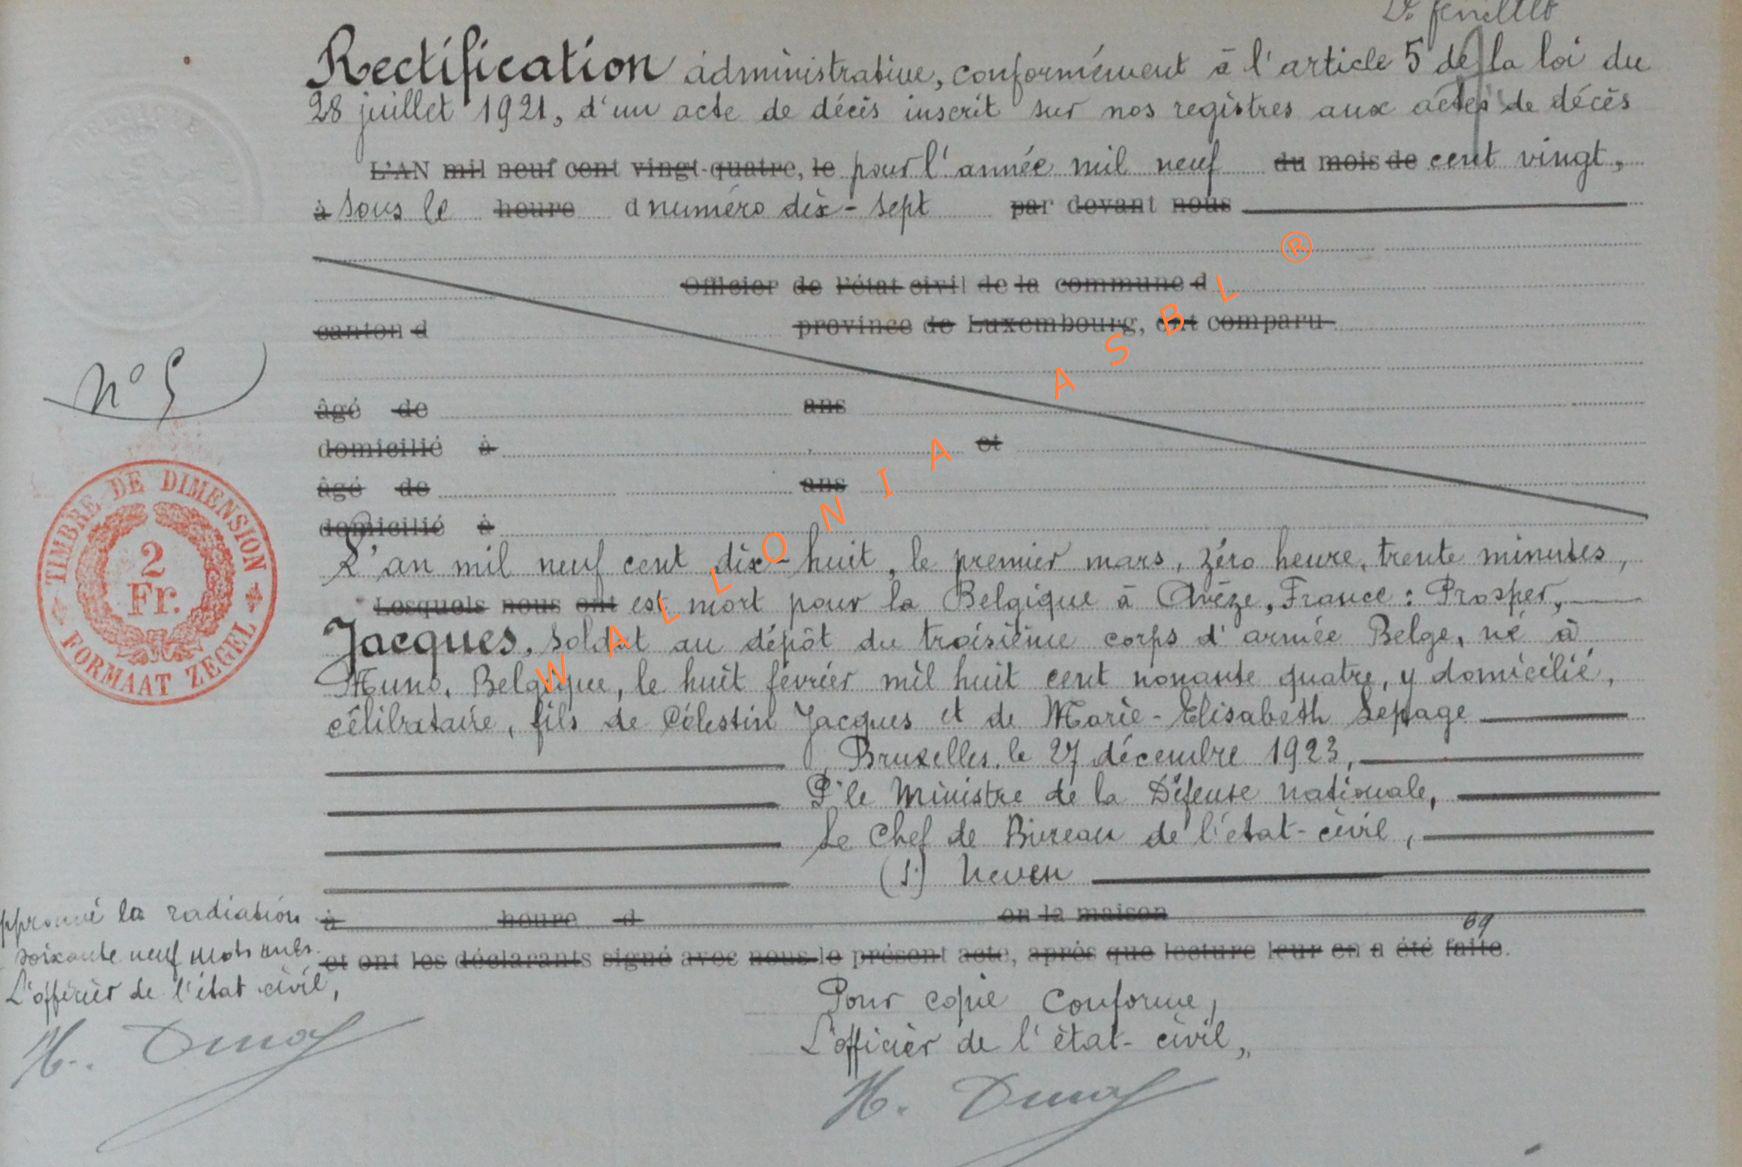 2e feuillet
Rectification administrative, conformément à l'article 5 de la loi du
28 juillet 1921, d'un acte de décès inscrit sur nos registres aux actes de décès
L'AN mil neuf cent vingt-quatre, le pour l'année mil neuf du mois de cent vingt,
à sous le heure d numéro dix-sept par devant nous
Officier de l'état civil de la commune d
canton d province de Luxembourg, ont comparu
âgé de ans
domicilié à et
âgé de ans
domicilié à
L'an mil neuf cent dix-huit, le premier mars, zéro heure, trente minutes,
Lesquels nous ont est mort pour la Belgique à Avèze, France : Prosper,
Jacques, soldat au dépôt du troisième corps d'armée Belge, né à
Muno, Belgique, le huit février mil huit cent nonante quatre, y domicilié,
célibataire, fils de Célestin Jacques et de Marie-Elisabeth Lepage
Bruxelles, le 27 décembre 1923,
Pr le Ministre de la Défense nationale,
Le Chef de Bureau de l'état-civil,
(s) Neven
à heure d en la maison
69
et ont les déclarants signé avec nous le présent acte, après que lecture leur en a été faite.
Pour copie conforme,
L'officier de l'état-civil,
H. 
N° 5
TIMBRE DE DIMENSION
2
Fr.
FORMAAT ZEGEL
pprouvé la radiation
soixante neuf mots nuls.
L'officier de l'état civil,
H.
WALLONIA ASBL ®